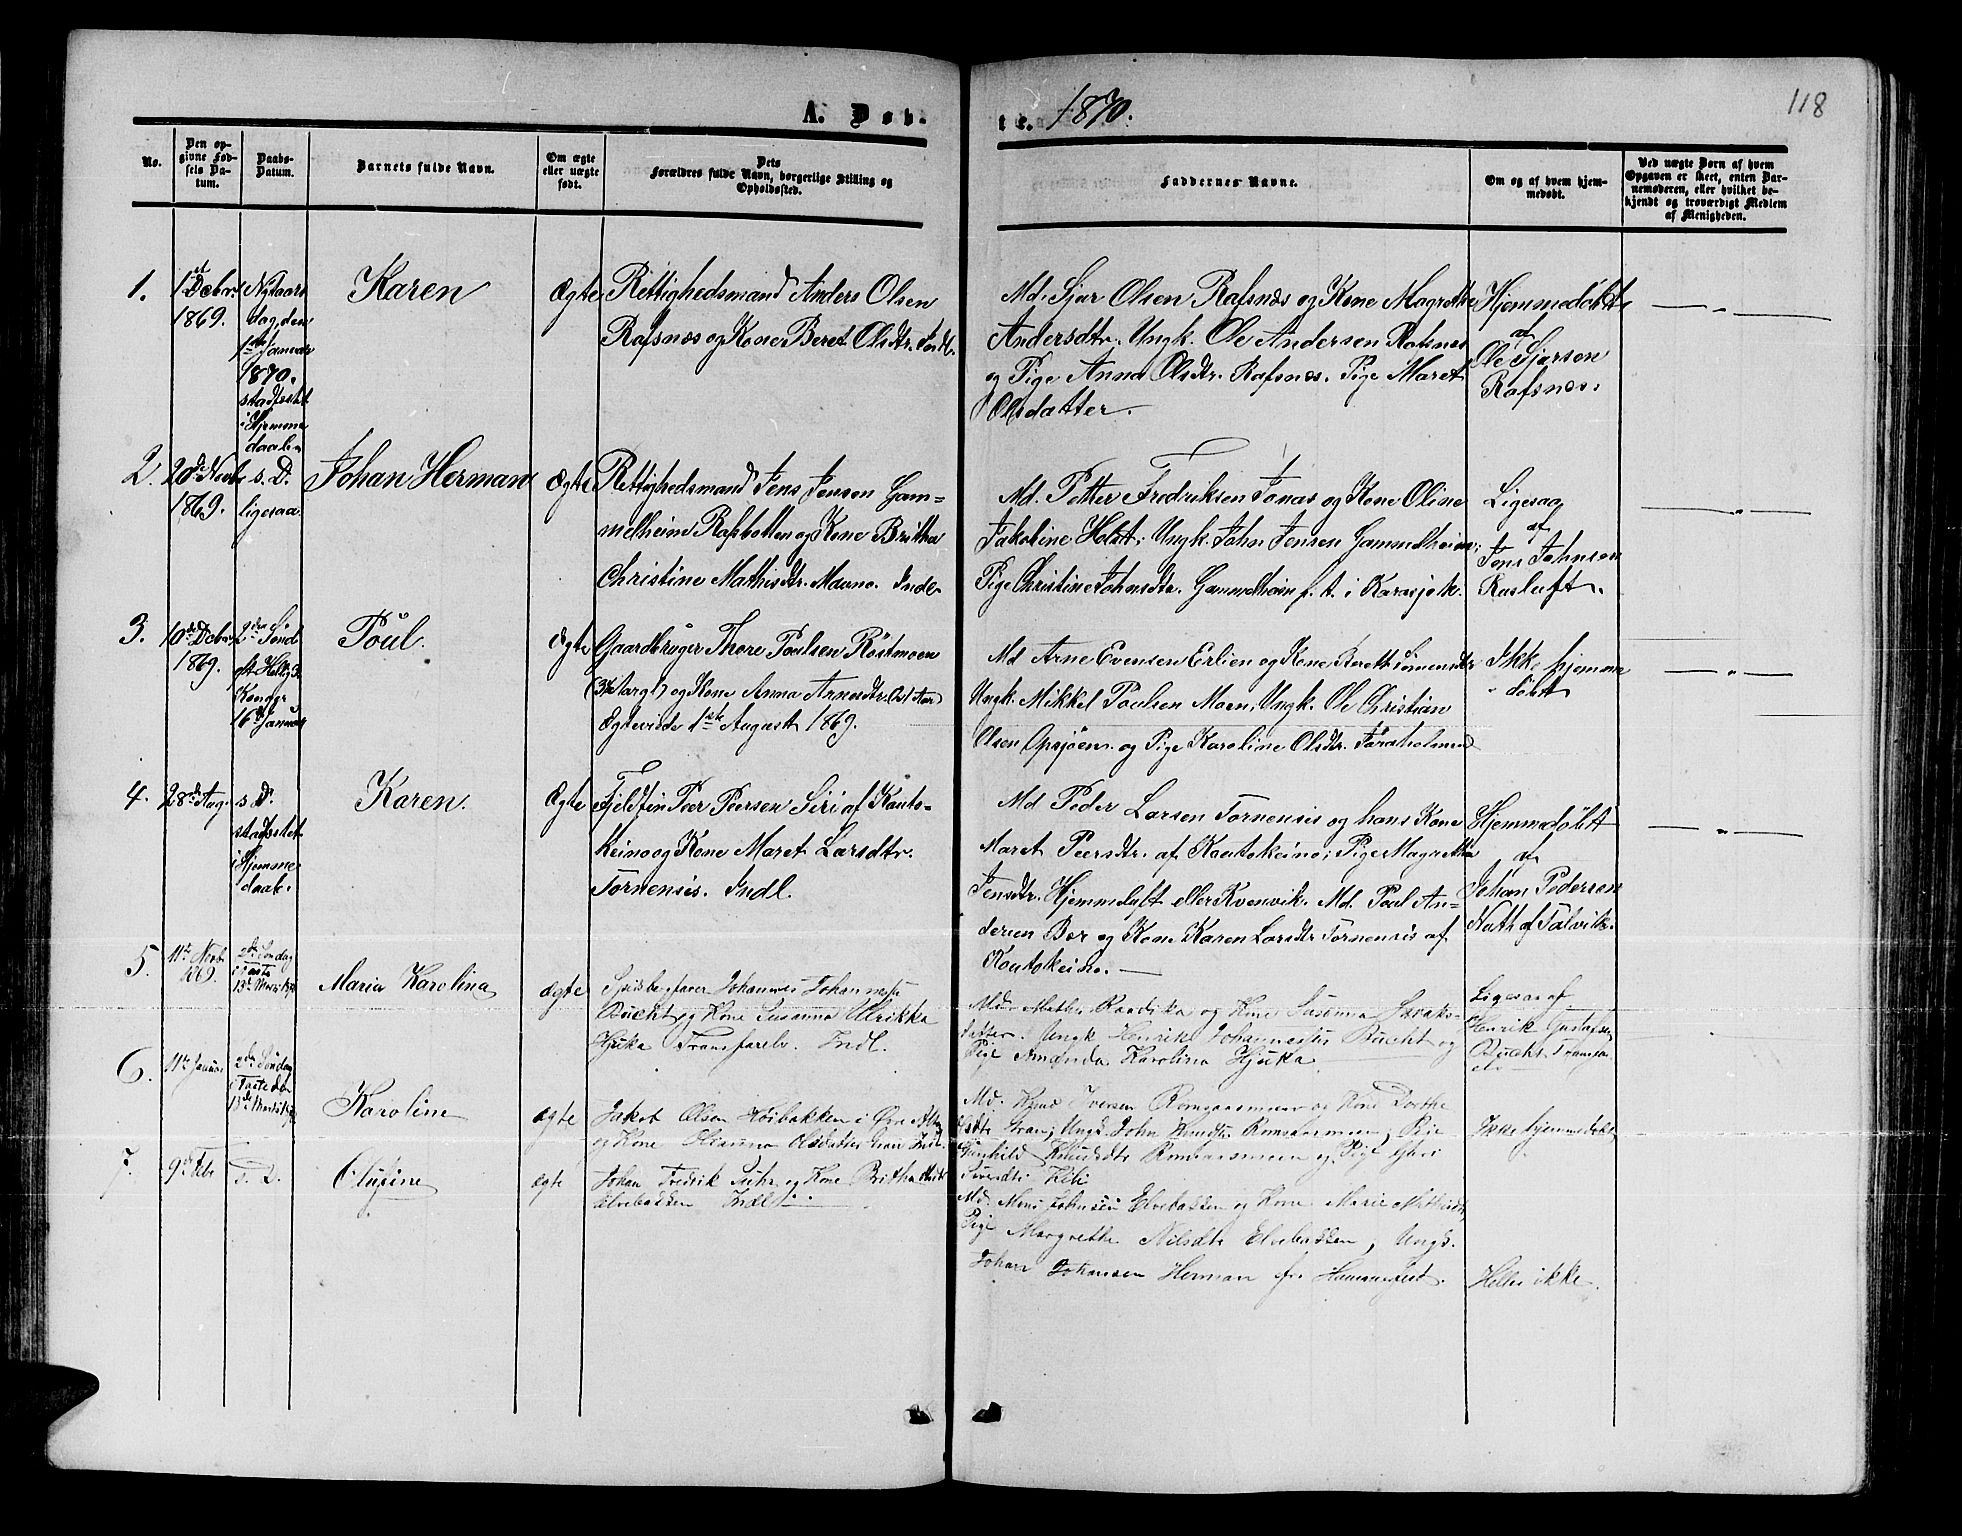 118
A. Døb-
te. 1870.
No.
Den op-
givne Fød-
sels Da-
tum.
Daabs-
Datum.
Barnets fulde Navn.
Om ægte
eller uægte
født.
Dets
Forældres fulde Navn, borgerlige Stilling og
Opholdssted.
Faddernes Navne.
Om og af hvem hjem-
medøbt.
Ved uægte Børn af hvem
Opgaven er skeet, enten Bar-
nemoderen, eller hvilket be-
kjendt og troværdigt Medlem
af Menigheden.
1.
1st Debr.
1869.
Nytaars
dag, den
1ste Januar
1870.
stadfestet
i Hjemme
daaben
Karen
Ægte
Rettighedsmand Anders Olsen
Rafsnæs og Kone Beret Olsdtr. Indl.
Md. Sjur Olsen Rafsnæs og Kone Magrethe
Andersdtr. Ungk. Ole Andersen Rafsnes
og Pige Anna Olsdtr. Rafsnæs. Pige Maret
Olsdatter.
Hjemmedøbt
af
Ole Sjursen
Rafsnæs.
2.
20de Novb
1869.
s. D.
ligesaa
Johan Herman
Ægte
Rettighedsmand Jens Jensen Gam-
melheim Rafsbotten og Kone Britha
Christine Mathisdtr. Indl.
Md. Petter Fredriksen Jonas og Kone Oline
Jakobine Holst; Ungk. John Jensen Gammelheim;
Pige Christine Johnsdtr. Gammelheim f. t. i Karasjok.
Ligesaa
af
Jens Johnsen
Rusluft.
3.
10de Debr
1869.
2den Sønd.
eft. Hellig 3
Konger
16de Januar
Poul.
Ægte
Gaardbruger Thore Poulsen Røstmoen
og Kone Anna Arnesdtr.
Ægteviede 1ste August 1869.
Md Arne Evensen Erlien og Kone Berett Simensdtr
Ungk. Mikkel Poulsen Moen, Ungk. Ole Christian
Olsen Opsjøen. og Pige Karoline Olsdtr.
Ikke hjemme
døbt
4.
28de Aug.
s. D.
stadfestet
i Hjemme
daab.
Karen.
Ægte
Fjeldfin Peer Peersen Siri af Kauto-
keino og Kone Maret Larsdtr.
Tornensis. Indl.
Md Peder Larsen Tornensis og hans Kone
Maret Peersdtr. af Kautokeino; Pige Magretha
Jensdtr. Hjemmeluft eller Kvenvik. Md. Poul An-
dersen Bær og Kone Karen Larsdtr Tornensis af
Koutokeino.
Hjemmedøbt
af
Johan Pedersen
Nuth af Talvik.
5.
11te Novb
1869.
2den Søndag
i Faste
13de Marts
Maria Karolina
ægte
Johannes
Bucht og Kone Susanna Ulrikka
Hjuka Transfarelv. Indl.
Md. Mathis og Kone Susanna Isaks-
datter. Ungk Henrik Johannessen Bucht og
Pige Amanda Karolina Hjuka.
Ligesaa af
Henrik Gustafsen
Bucht
6.
11te Januar
2den Søndag
i Faste den
13de Marts
Karoline
ægte
Jakob Olsen Høibakken i Øvre Alten
og Kone Olianna Olsdatter Indl.
Md. Knud Iversen Romsaasmoen og Kone Dorthe
Ungk. John Knudsen Romsaasmoen, Pige
Gunhild Knudsdtr Romsaasmoen og Pige
Sivertsdtr
Ikke hjemmedøbt
7.
9de Febr
s. D.
Olufine
ægte
Johan Fredrik Suhr og Kone Britha
Elvebakken Indl.
Md. Mons Johnsen Elvebakken og Kone Marie
Pige Margrethe Nilsdtr Elvebakken, Ungk.
Johan Johansen Herman fra Hammerfest.
Heller ikke.